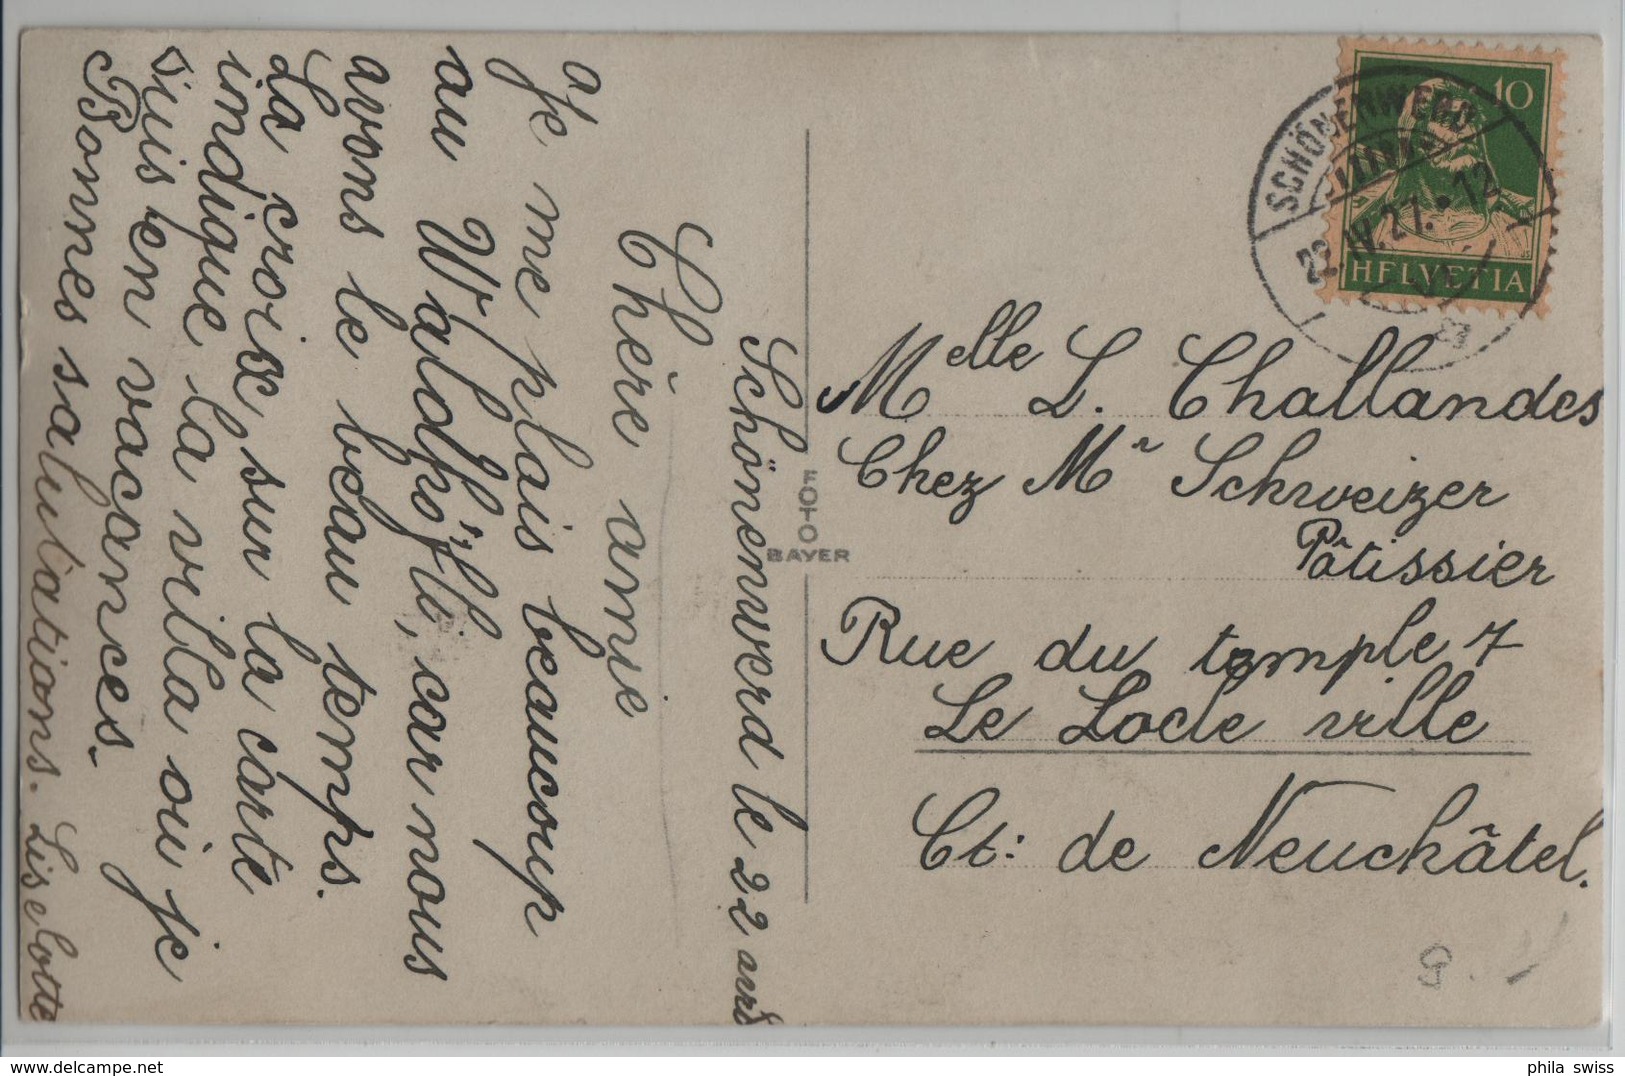 Schönenwerd le 22 avril
Chère amie
Je me plais beaucoup
au Waldhöfli, car nous
avons le beau temps.
La croix sur la carte
indique la villa où je
suis en vacances.
Bonnes salutations. Liselotte
FOTO
BAYER
SCHÖNENWERD
22.IV.27.-12
10
HELVETIA
Melle L. Challandes
Chez Mr Schweizer
Pâtissier
Rue du temple 7
Le Locle ville
Ct: de Neuchâtel.
phila swiss